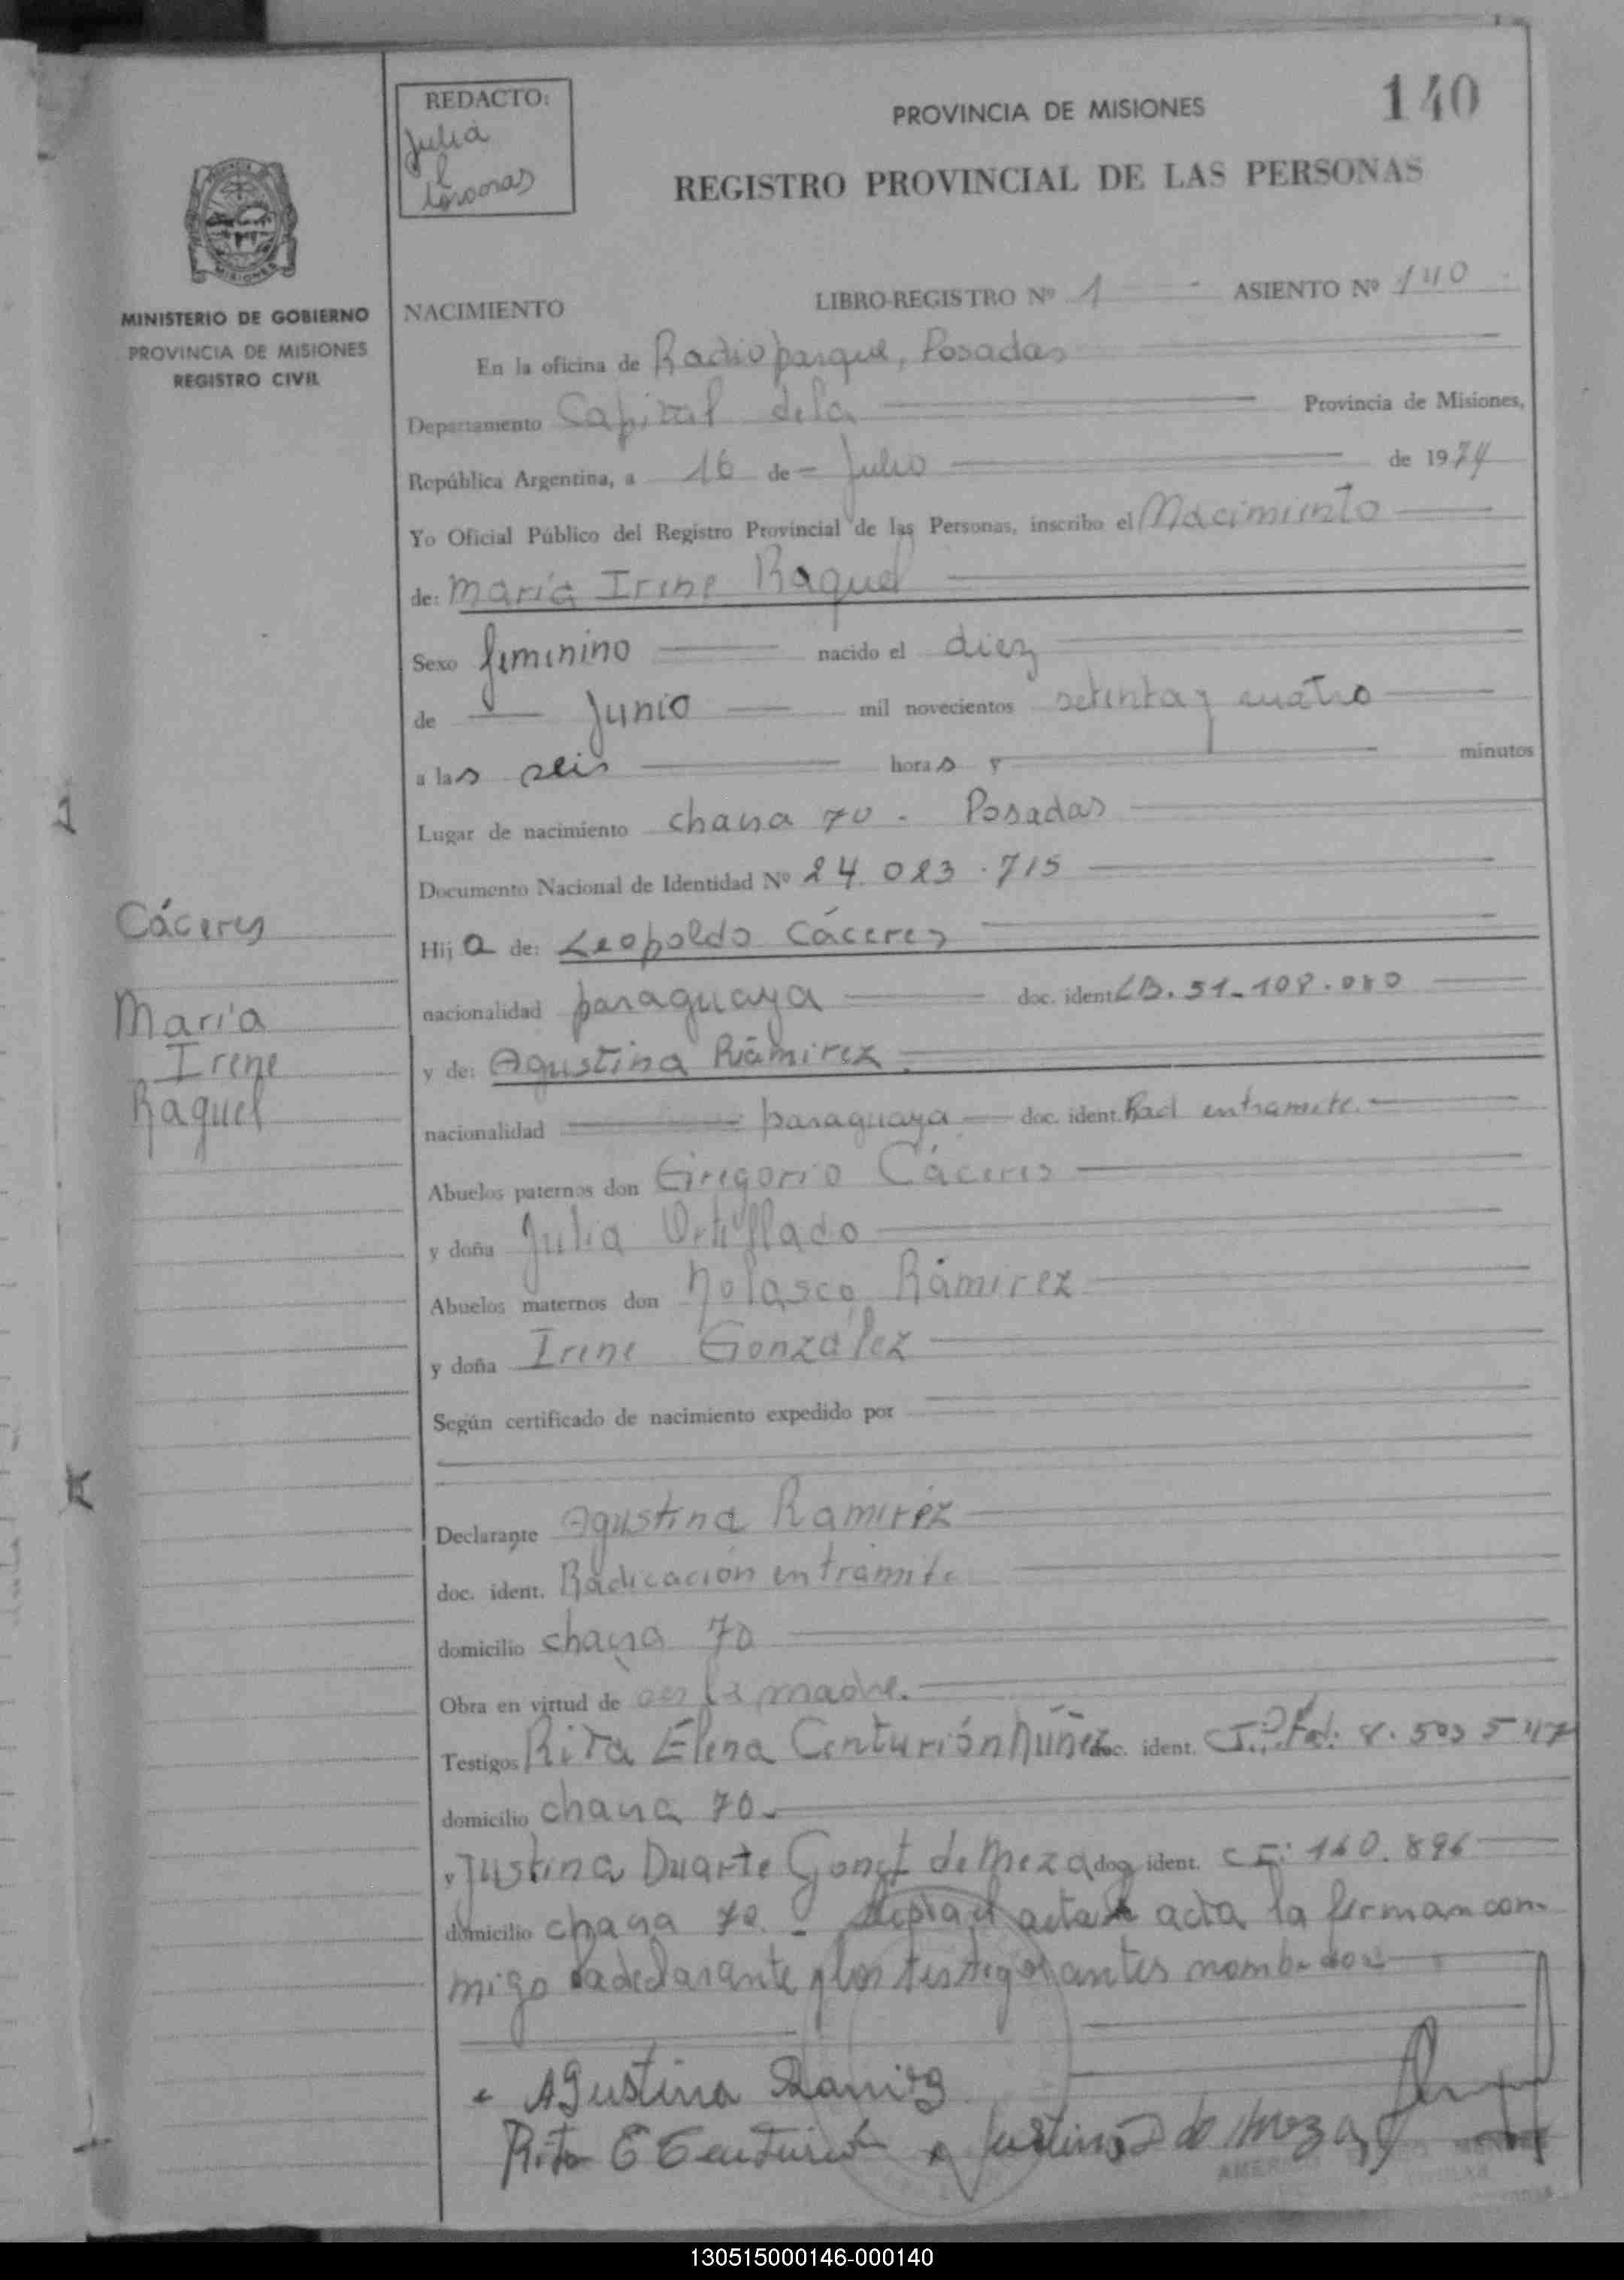 REDACTO:
Julia
140
PROVINCIA DE MISIONES
REGISTRO PROVINCIAL DE LAS PERSONAS
MISIONES
MINISTERIO DE GOBIERNO
PROVINCIA DE MISIONES
REGISTRO CIVIL
NACIMIENTO LIBRO-REGISTRO Nº 1 ASIENTO Nº 140
En la oficina de Radioparque, Posadas
Departamento Capital dela Provincia de Misiones,
República Argentina, a 16 de Julio de 1974
Yo Oficial Público del Registro Provincial de las Personas, inscribo el Nacimiento
de: María Irene Raquel
Sexo femenino nacido el diez
de Junio mil novecientos setenta y cuatro
a las seis horas y minutos
Lugar de nacimiento chacra 70 - Posadas
Documento Nacional de Identidad Nº 24.023.715
Cáceres
Hija de: Leopoldo Cáceres
nacionalidad paraguaya doc. ident. 51-108.080
María
Irene
Raquel
y de: Agustina Ramirez
nacionalidad paraguaya doc. ident. Rad entramite.
Abuelos paternos don Gregorio Cáceres
y doña Julia
Abuelos maternos don Nolasco Ramirez
y doña Irene González
Según certificado de nacimiento expedido por
Declarante Agustina Ramirez
doc. ident. Radicación en tramite
domicilio chacra 70
Obra en virtud de ser la madre.
Testigos Rita Elena Centurión Núñez doc. ident. 8.503 547
domicilio chacra 70.
y Justina Duarte Gonz de Meza doc. ident. CI: 160.896
domicilio chacra 70. - acta la firman con-
migo la declarante y los testigos antes nombrados
Agustina Ramirez
Rita E Centurión Justina D de Meza
130515000146-000140